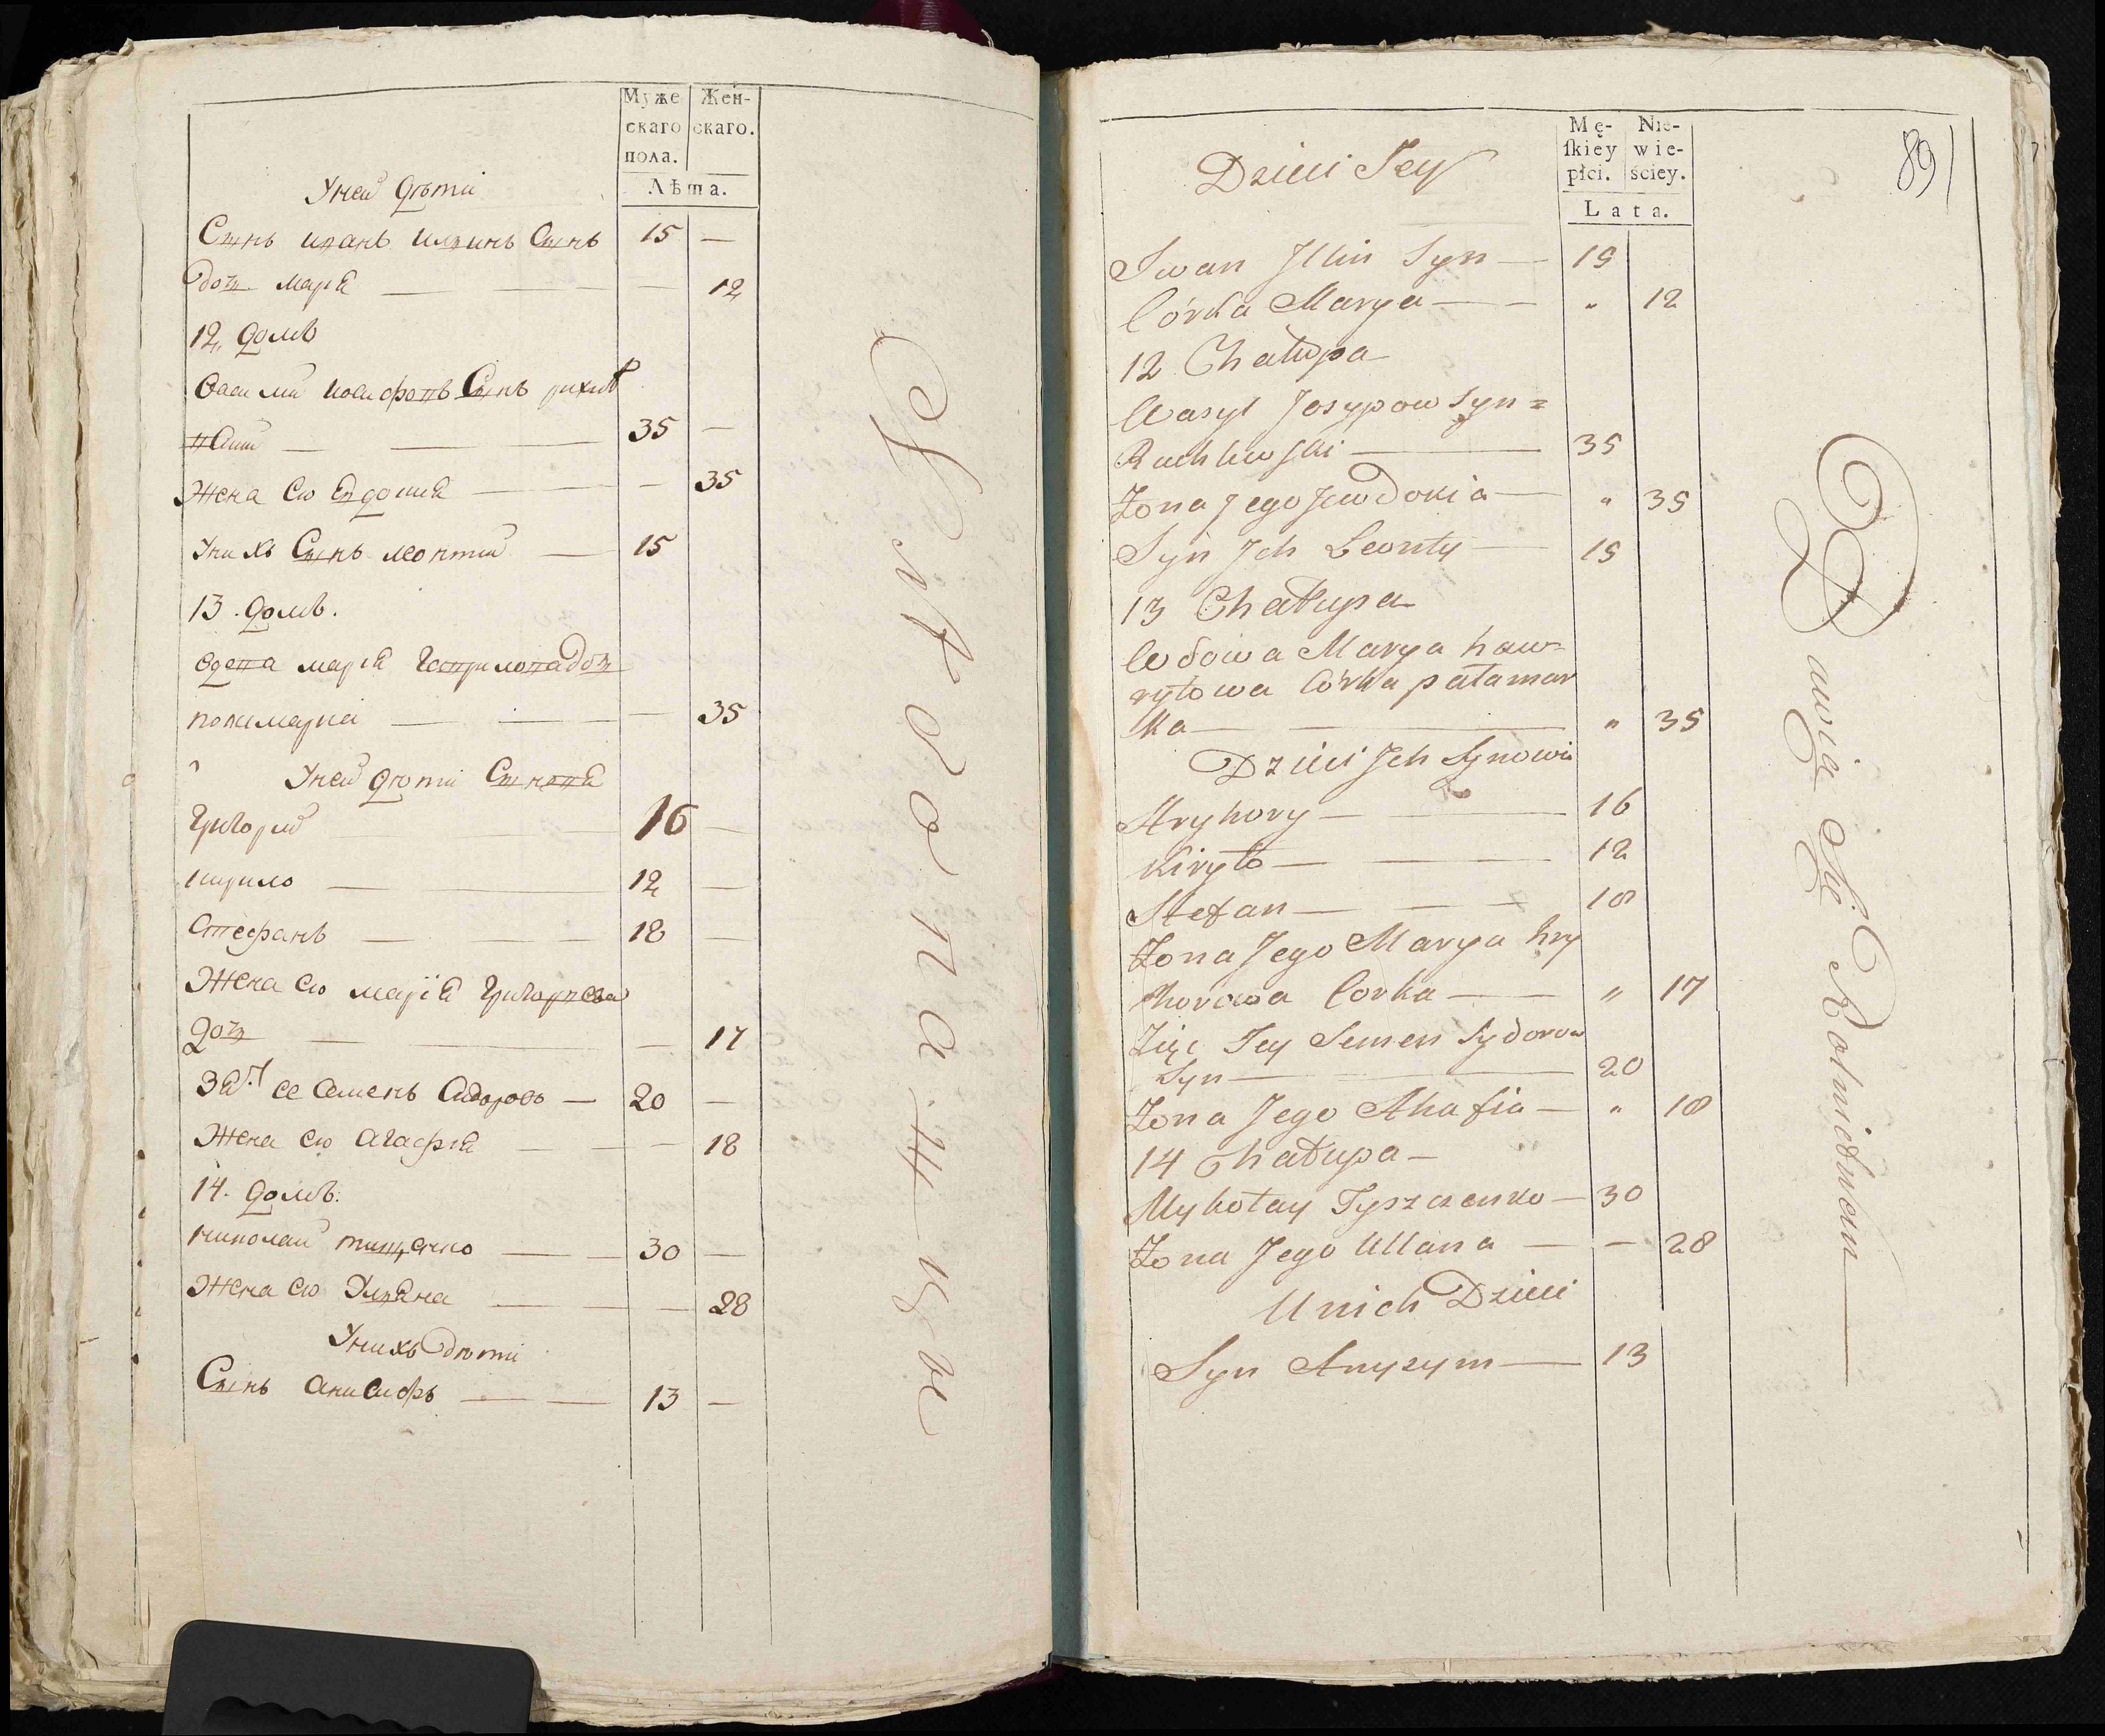 Муже
скаго
пола.
Жен-
скаго.
Лѣта.
У ней дѣти
Сынъ иванъ илинъ Сынъ 15 —
Дочь марія — 12
12, домъ
Василій иосифовъ Сынъ рихлѣ
вскій — 35 —
Жена ево Евдокия — 35
У нихъ Сынъ леонтій — 15
13. домъ.
вдова марія гаврилова дочь
понамарка — 35
У ней дѣти Сыновя
Григорій 16 —
кирило — 12 —
Стефанъ — 18 —
Жена ево марія Григорева
дочь — 17
Зять ее Семенъ Сидоровъ — 20 —
Жена ево Агафія — 18
14. домъ:
николай тищенко — 30 —
Жена ево Улияна — 28
У нихъ дѣти
Сынъ Анисифъ — 13 —
Mę-
skiey
płci.
Nie-
wie-
ściey.
Lata.
89
Dzieci Jey
Iwan Illin Syn — 15
Córka Marya — " 12
12 Chałupa
Wasyl Josypow Syn =
Ruchlewski — 35
Żona Jego Jewdokia — " 35
Syn Ich Leonty — 15
13 Chałupa
Wdowa Marya haw-
ryłowa Córka pałamar
ka — " 35
Dzieci Ich Synowie
Hryhory — 16
Kiryło — 12
Stefan — 18
Żona Jego Marya hry
horowa Corka — " 17
Zięć Jey Semen Sydorow
Syn — 20
Żona Jego Ahafia — " 18
14 Chałupa —
Mykołay Tyszczenko — 30
Żona Jego Ullana — — 28
U nich Dzieci
Syn Anyzym — 13
Bawią Się Rolnictwem